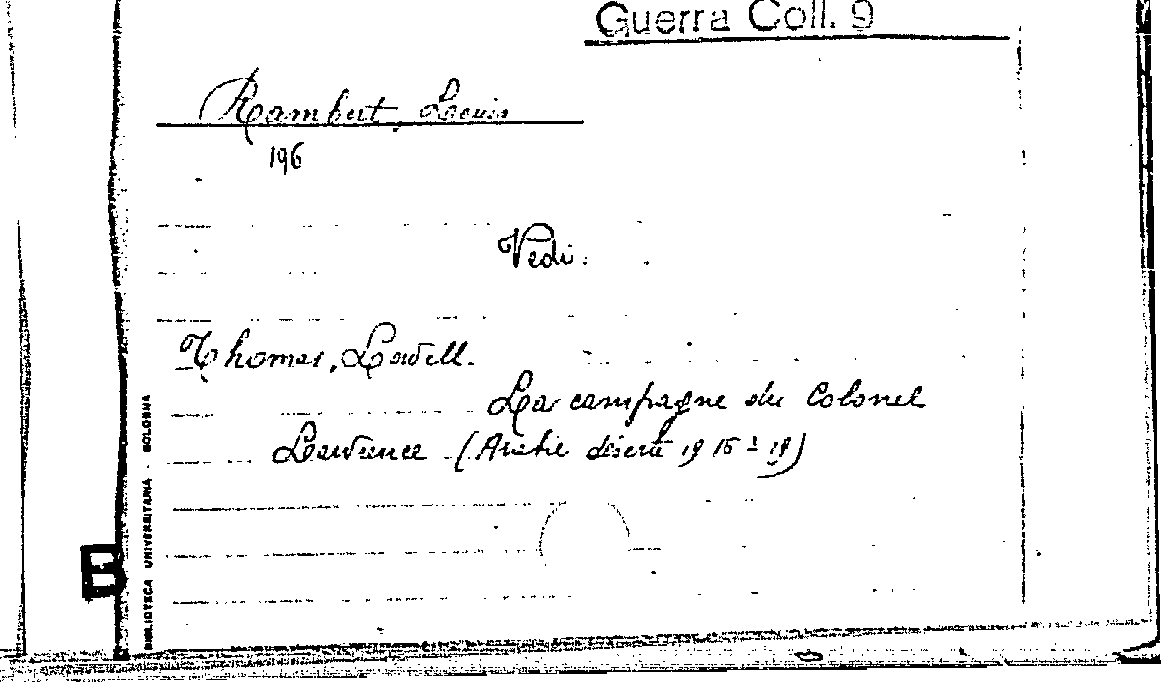 Guerra Coll. 9
Rambert, Louis
196
Vedi:
Thomas, Lowell.
La campagne du Colonel
Lawrence (Arabie déserte 1916-19)
BIBLIOTECA UNIVERSITARIA - BOLOGNA
B